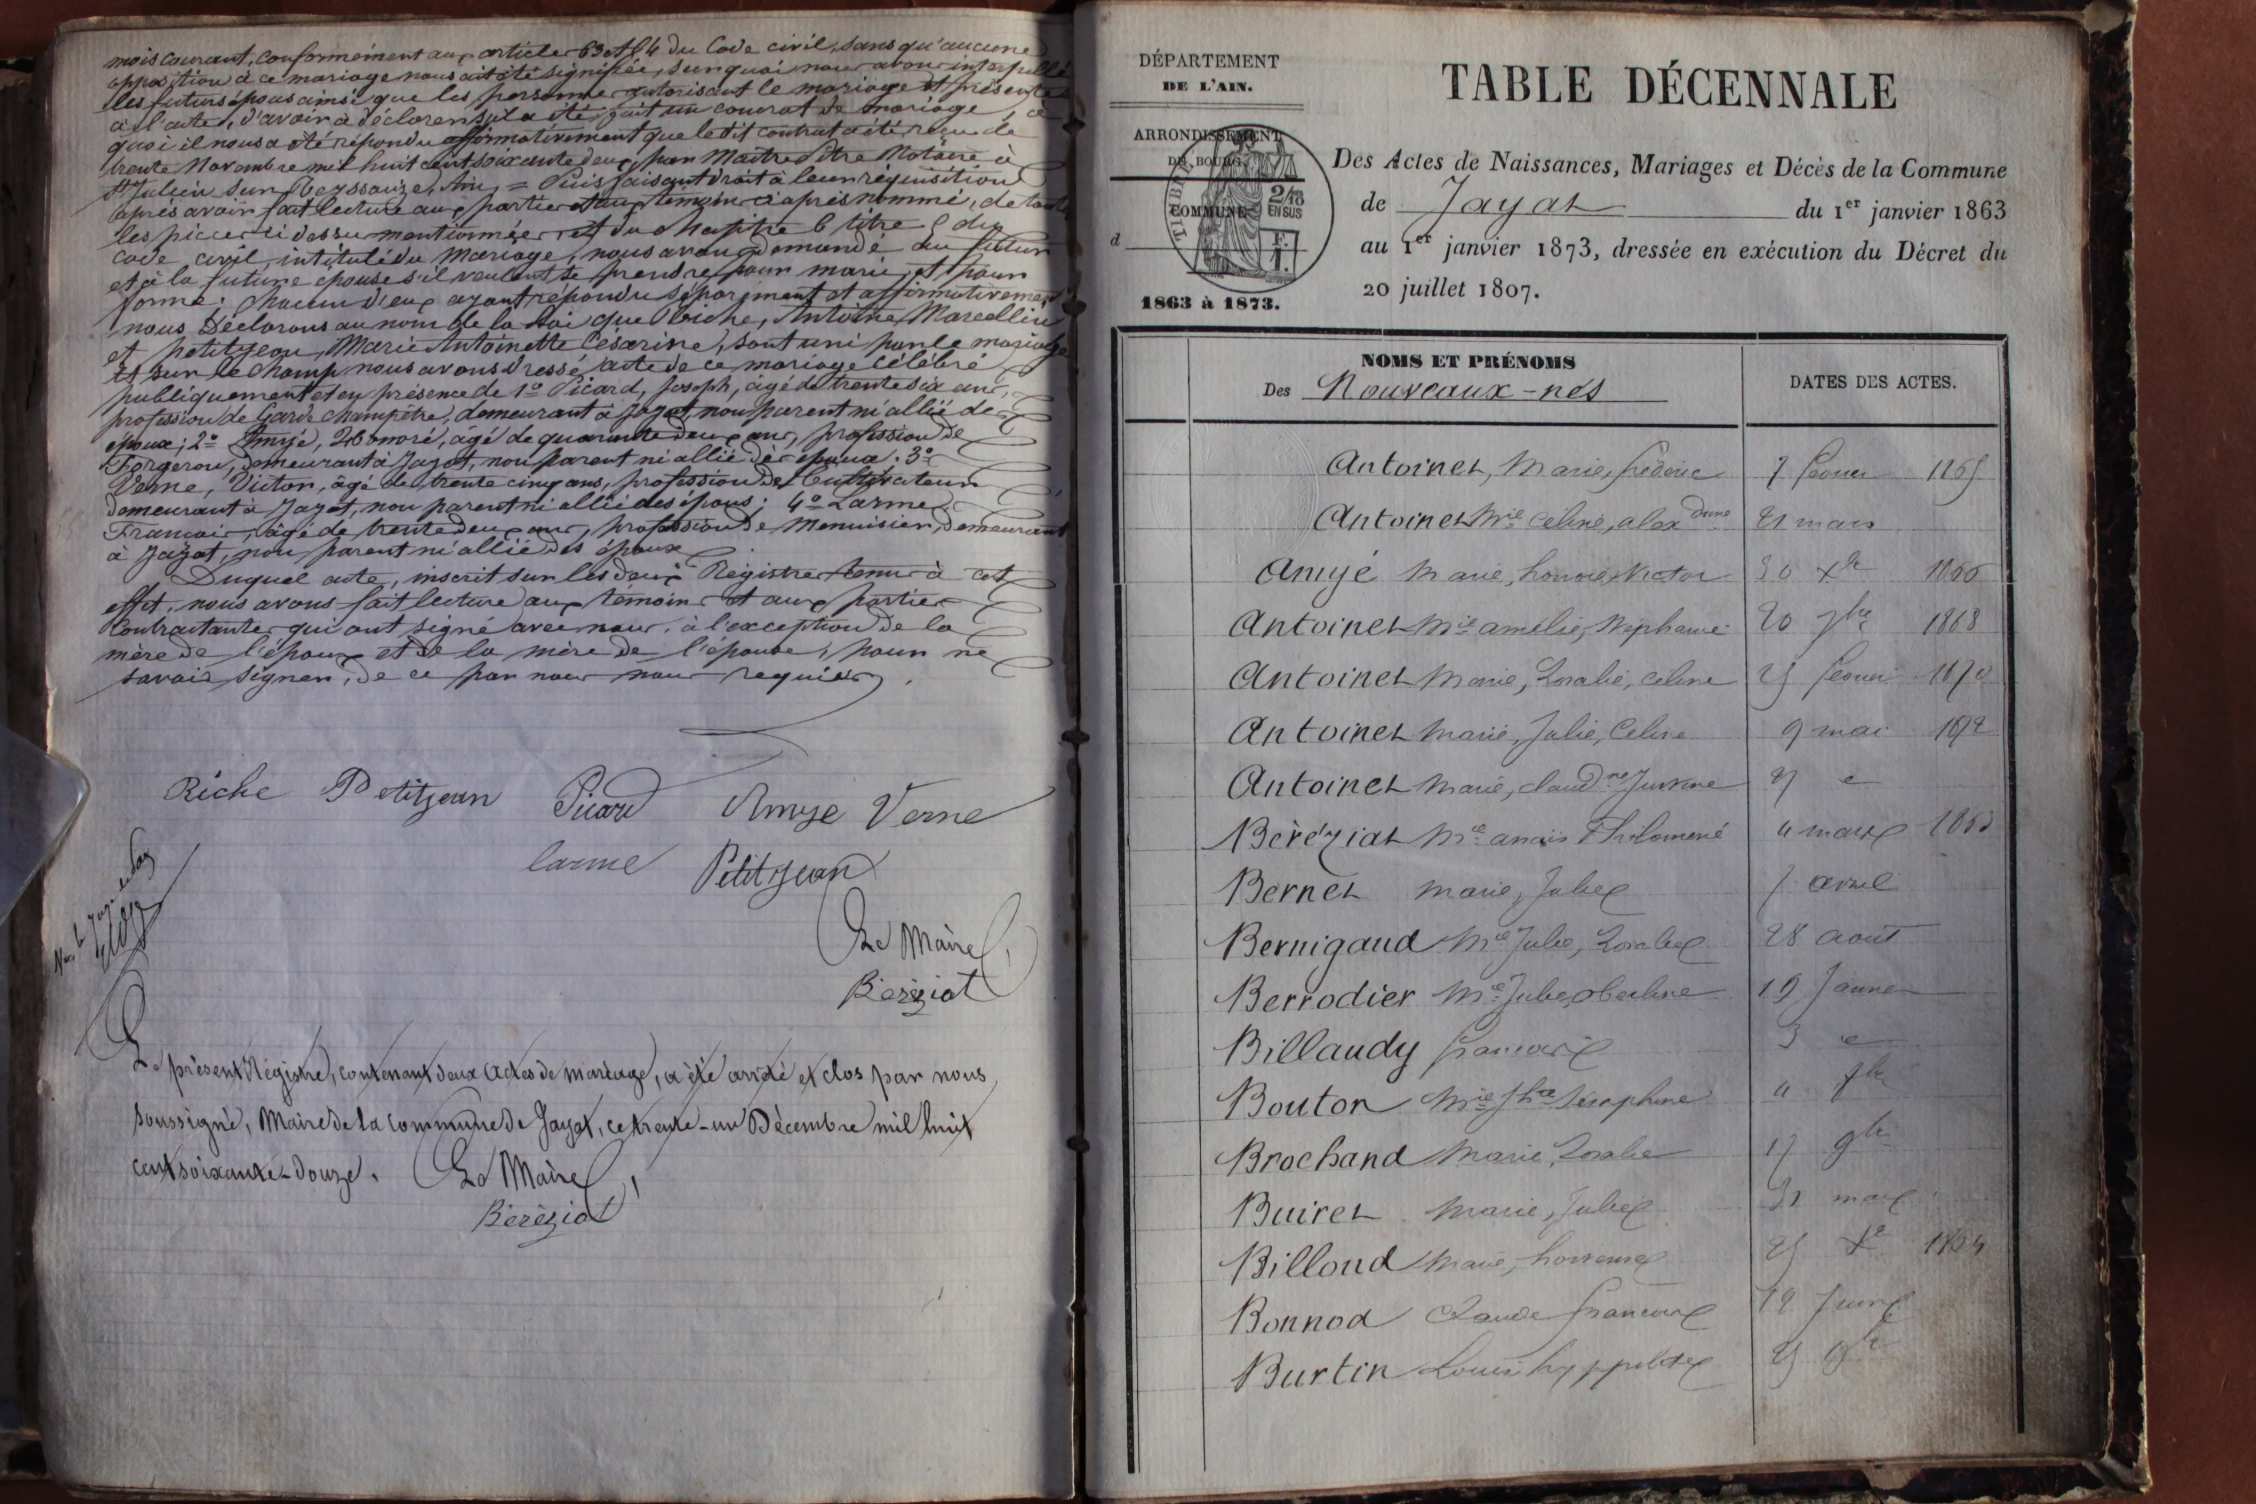 mois courant, conformément aux article 63 et 64 du Code civil, sans qu'aucune
opposition à ce mariage nous ait été signifiée, sur quoi nous avons interpellé
les futurs époux ainsi que les personne autorisant le mariage et présentes
à l'acte, d'avoir à déclarer s'il a été fait un contrat de mariage, à
quoi il nous a été répondu affirmativement que le dit contrat a été reçu le
trente Novembre mil huit cent soixante douze, par Maître Notaire à
St Julien sur Reyssouze, Ain, = Puis faisant droit à leur réquisition
après avoir fait lecture aux parties et aux témoins ci après nommé, de toutes
les pièces ci dessus mentionnées et du chapitre 6 titre 5 du
code civil, intitulé du Mariage, nous avons demandé au futur
et à la future épouse s'il veulent se prendre pour mari et pour
femme: chacun d'eux ayant répondu séparément et affirmativement
nous Déclarons au nom de la loi que Riche, Antoine Marcellin
et Petitjean, Marie Antoinette Césarine, sont uni par le mariage
Et sur le champ nous avons dressé acte de ce mariage célébré
publiquement et en présence de 1º Picard, Joseph, âgé de trente six ans,
profession de Garde champêtre, demeurant à Jayat, non parent ni allié des
époux; 2º Amyé, Honoré, âgé de quarante deux ans, profession de
Forgeron, demeurant à Jayat, non parent ni allié des époux. 3º
Verne, Victor, âgé de trente cinq ans, profession de Cultivateur
demeurant à Jayat, non parent ni allié des époux; 4º Larme
Francois, âgé de trente deux ans, profession de Menuisier, demeurant
à Jayat, non parent ni allié des époux
Duquel acte, inscrit sur les deux Registre tenu à cet
effet, nous avons fait lecture aux témoins et aux parties
Contractantes qui ont signé avec nous, à l'exception de la
mère de l'époux et de la mère de l'épouse, pour ne
savoir signer, de ce par nous requises.
Riche Petitjean Picard Amyé Verne
larme Petitjean
Le Maire
Béréziat
Le présent Régistre, contenant deux Actes de mariage, a été arrêté et clos par nous
soussigné, Maire de la commune de Jayat, ce trente-un Décembre mil huit
cent soixante-douze. Le Maire
Béréziat
DÉPARTEMENT
DE L'AIN.
ARRONDISSEMENT
DE BOURG
COMMUNE
d
TIMBRE
2/10
EN SUS
F.
1.
1863 à 1873.
TABLE DÉCENNALE
Des Actes de Naissances, Mariages et Décès de la Commune
de Jayat du 1er janvier 1863
au 1er janvier 1873, dressée en exécution du Décret du
20 juillet 1807.
NOMS ET PRÉNOMS
Des Nouveaux-nés
DATES DES ACTES.
Antoinet, Marie, frédéric 7 février 1865
Antoinet Mie Céline, alexdrine 21 mars
Amyé Marie, honoré, Victor 30 Xbre 1866
Antoinet Mie amélie, Stéphanie 20 7bre 1868
Antoinet Marie, Rosalie, Céline 25 février 1870
Antoinet Marie, Julie, Céline 9 mai 1872
Antoinet Marie, claudne
Béréziat Mie anaïs Philomène 4 mars 1863
Bernet Marie, Julie 7 avril
Bernigaud Mie Julie, Rosalie 28 aout
Berrodier Mie Julie 19 Janvier
Billaudy françois
Bouton Mie Séraphine
Brochand Marie, Rosalie 17 9bre
Buiret Marie, Julie 31 mars
Billoud Marie 25 Xbre 1864
Bonnod Claude françois 12 Juin
Burtin Louis hyppolite